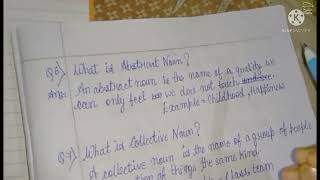 Made With
KINEMASTER
Q6) What is Abstract Noun?
Ans: An abstract noun is the name of a quality we
can only feel we does not touch
Example = Childhood, Happiness
Q7) What is Collective Noun?
A collective noun is the name of a group of people
of things the same kind.
class, team